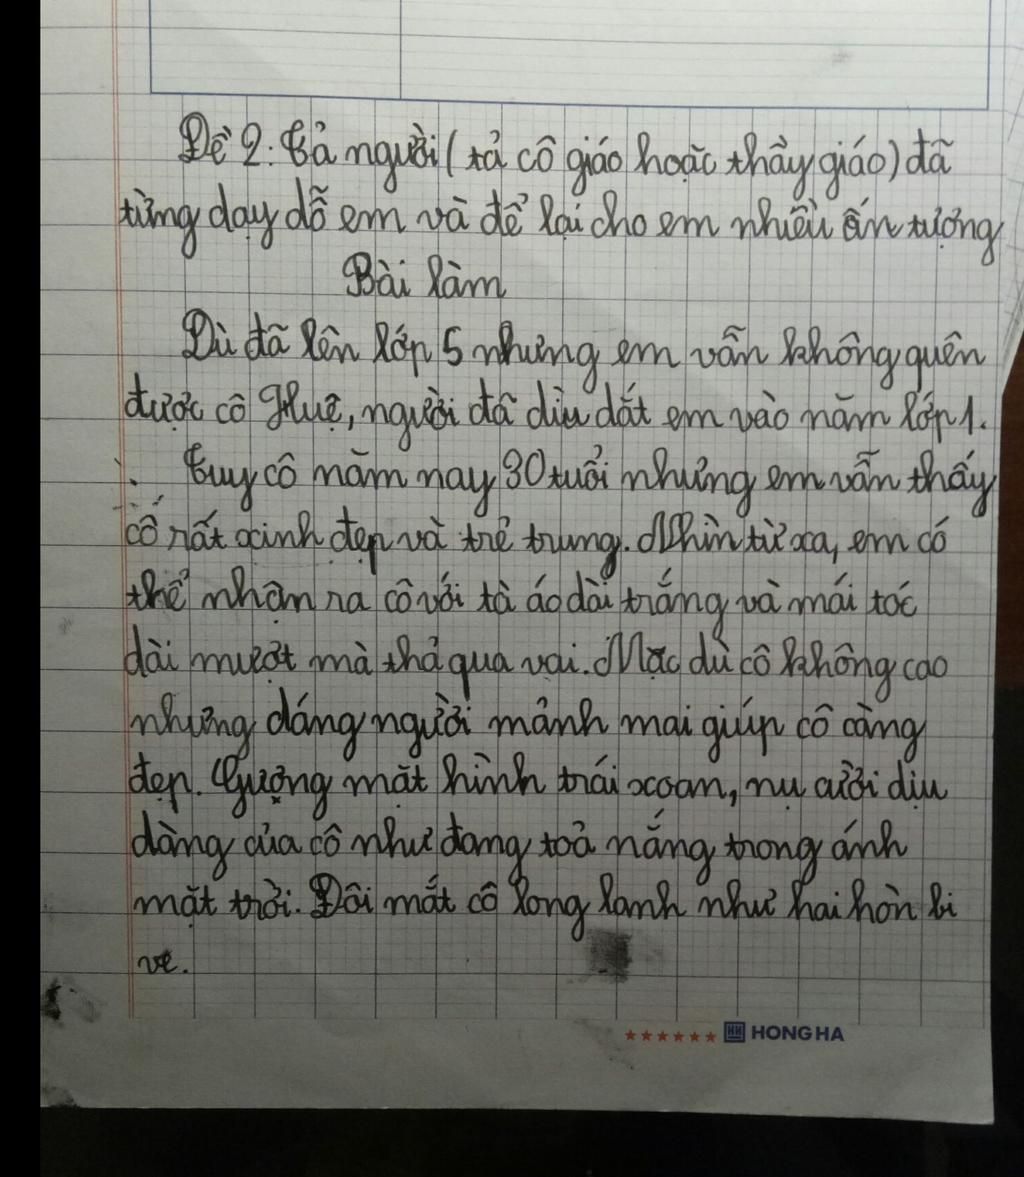 Đề 2: Tả người (tả cô giáo hoặc thầy giáo) đã
từng dạy dỗ em và để lại cho em nhiều ấn tượng
Bài làm
Dù đã lên lớp 5 nhưng em vẫn không quên
được cô Huệ, người đã dìu dắt em vào năm lớp 1.
Tuy cô năm nay 30 tuổi nhưng em vẫn thấy
cô rất xinh đẹp và trẻ trung. Nhìn từ xa, em có
thể nhận ra cô với tà áo dài trắng và mái tóc
dài mượt mà thả qua vai. Mặc dù cô không cao
nhưng dáng người mảnh mai giúp cô càng
đẹp. Gượng mặt hình trái xoan, nụ cười dịu
dàng của cô như đang toả nắng trong ánh
mặt trời. Đôi mắt cô long lanh như hai hòn bi
ve.
HONG HA